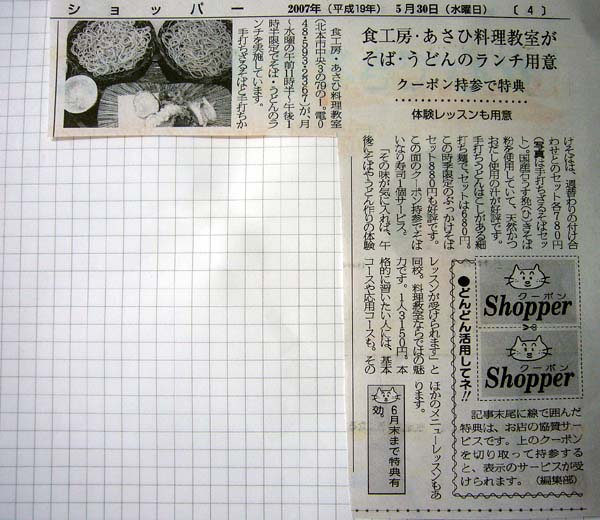 ショッパー 2007年（平成19年） 5月30日（水曜日） 〔4〕
食工房・あさひ料理教室が
そば・うどんのランチ用意
クーポン持参で特典
体験レッスンも用意
食工房・あさひ料理教室
（北本市中央3の79の1。電0
48・593・2367）が、月
～水曜の午前11時半～午後1
時半限定でそば・うどんのラ
ンチを実施しています。
手打ちざるそばと手打ちか
けそばは、週替わりの付け合
わせとのセット各780円
（写真は手打ちざるそばセッ
ト）。国産石うす免（ひ）きそば
粉を使用していて、天然かつ
おだし使用の汁が好評です。
手打ちうどんはこしがある細
打ち麺で、セットは680円。
この時季限定のぶっかけそば
セット880円も好評です。
この面のクーポン持参でそば
いなり寿司1個サービス。
「その味が気に入れば、午
後にそばやうどん作りの体験
レッスンが受けられます」と
同校。料理教室ならではの魅
力です。1人3150円。本
格的に習いたい人には、基本
コースや応用コースも。その
ほかのメニューレッスンもあ
ります。
6月末まで特典有
効。
●どんどん活用してネ!!
クーポン
Shopper
クーポン
Shopper
記事末尾に線で囲んだ
特典は、お店の協賛サー
ビスです。上のクーポン
を切り取って持参する
と、表示のサービスが受
けられます。（編集部）